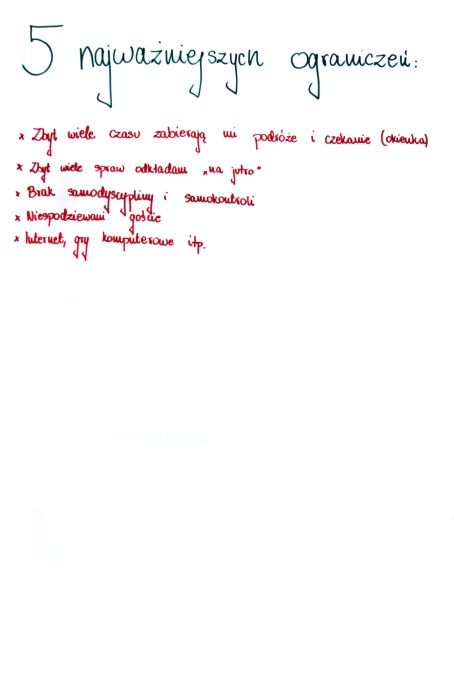 5 najważniejszych ograniczeń:
x Zbyt wiele czasu zabierają mi podróże i czekanie (okienka)
x Zbyt wiele spraw odkładam „na jutro"
x Brak samodyscypliny i samokontroli
x Niespodziewani goście
x Internet, gry komputerowe itp.